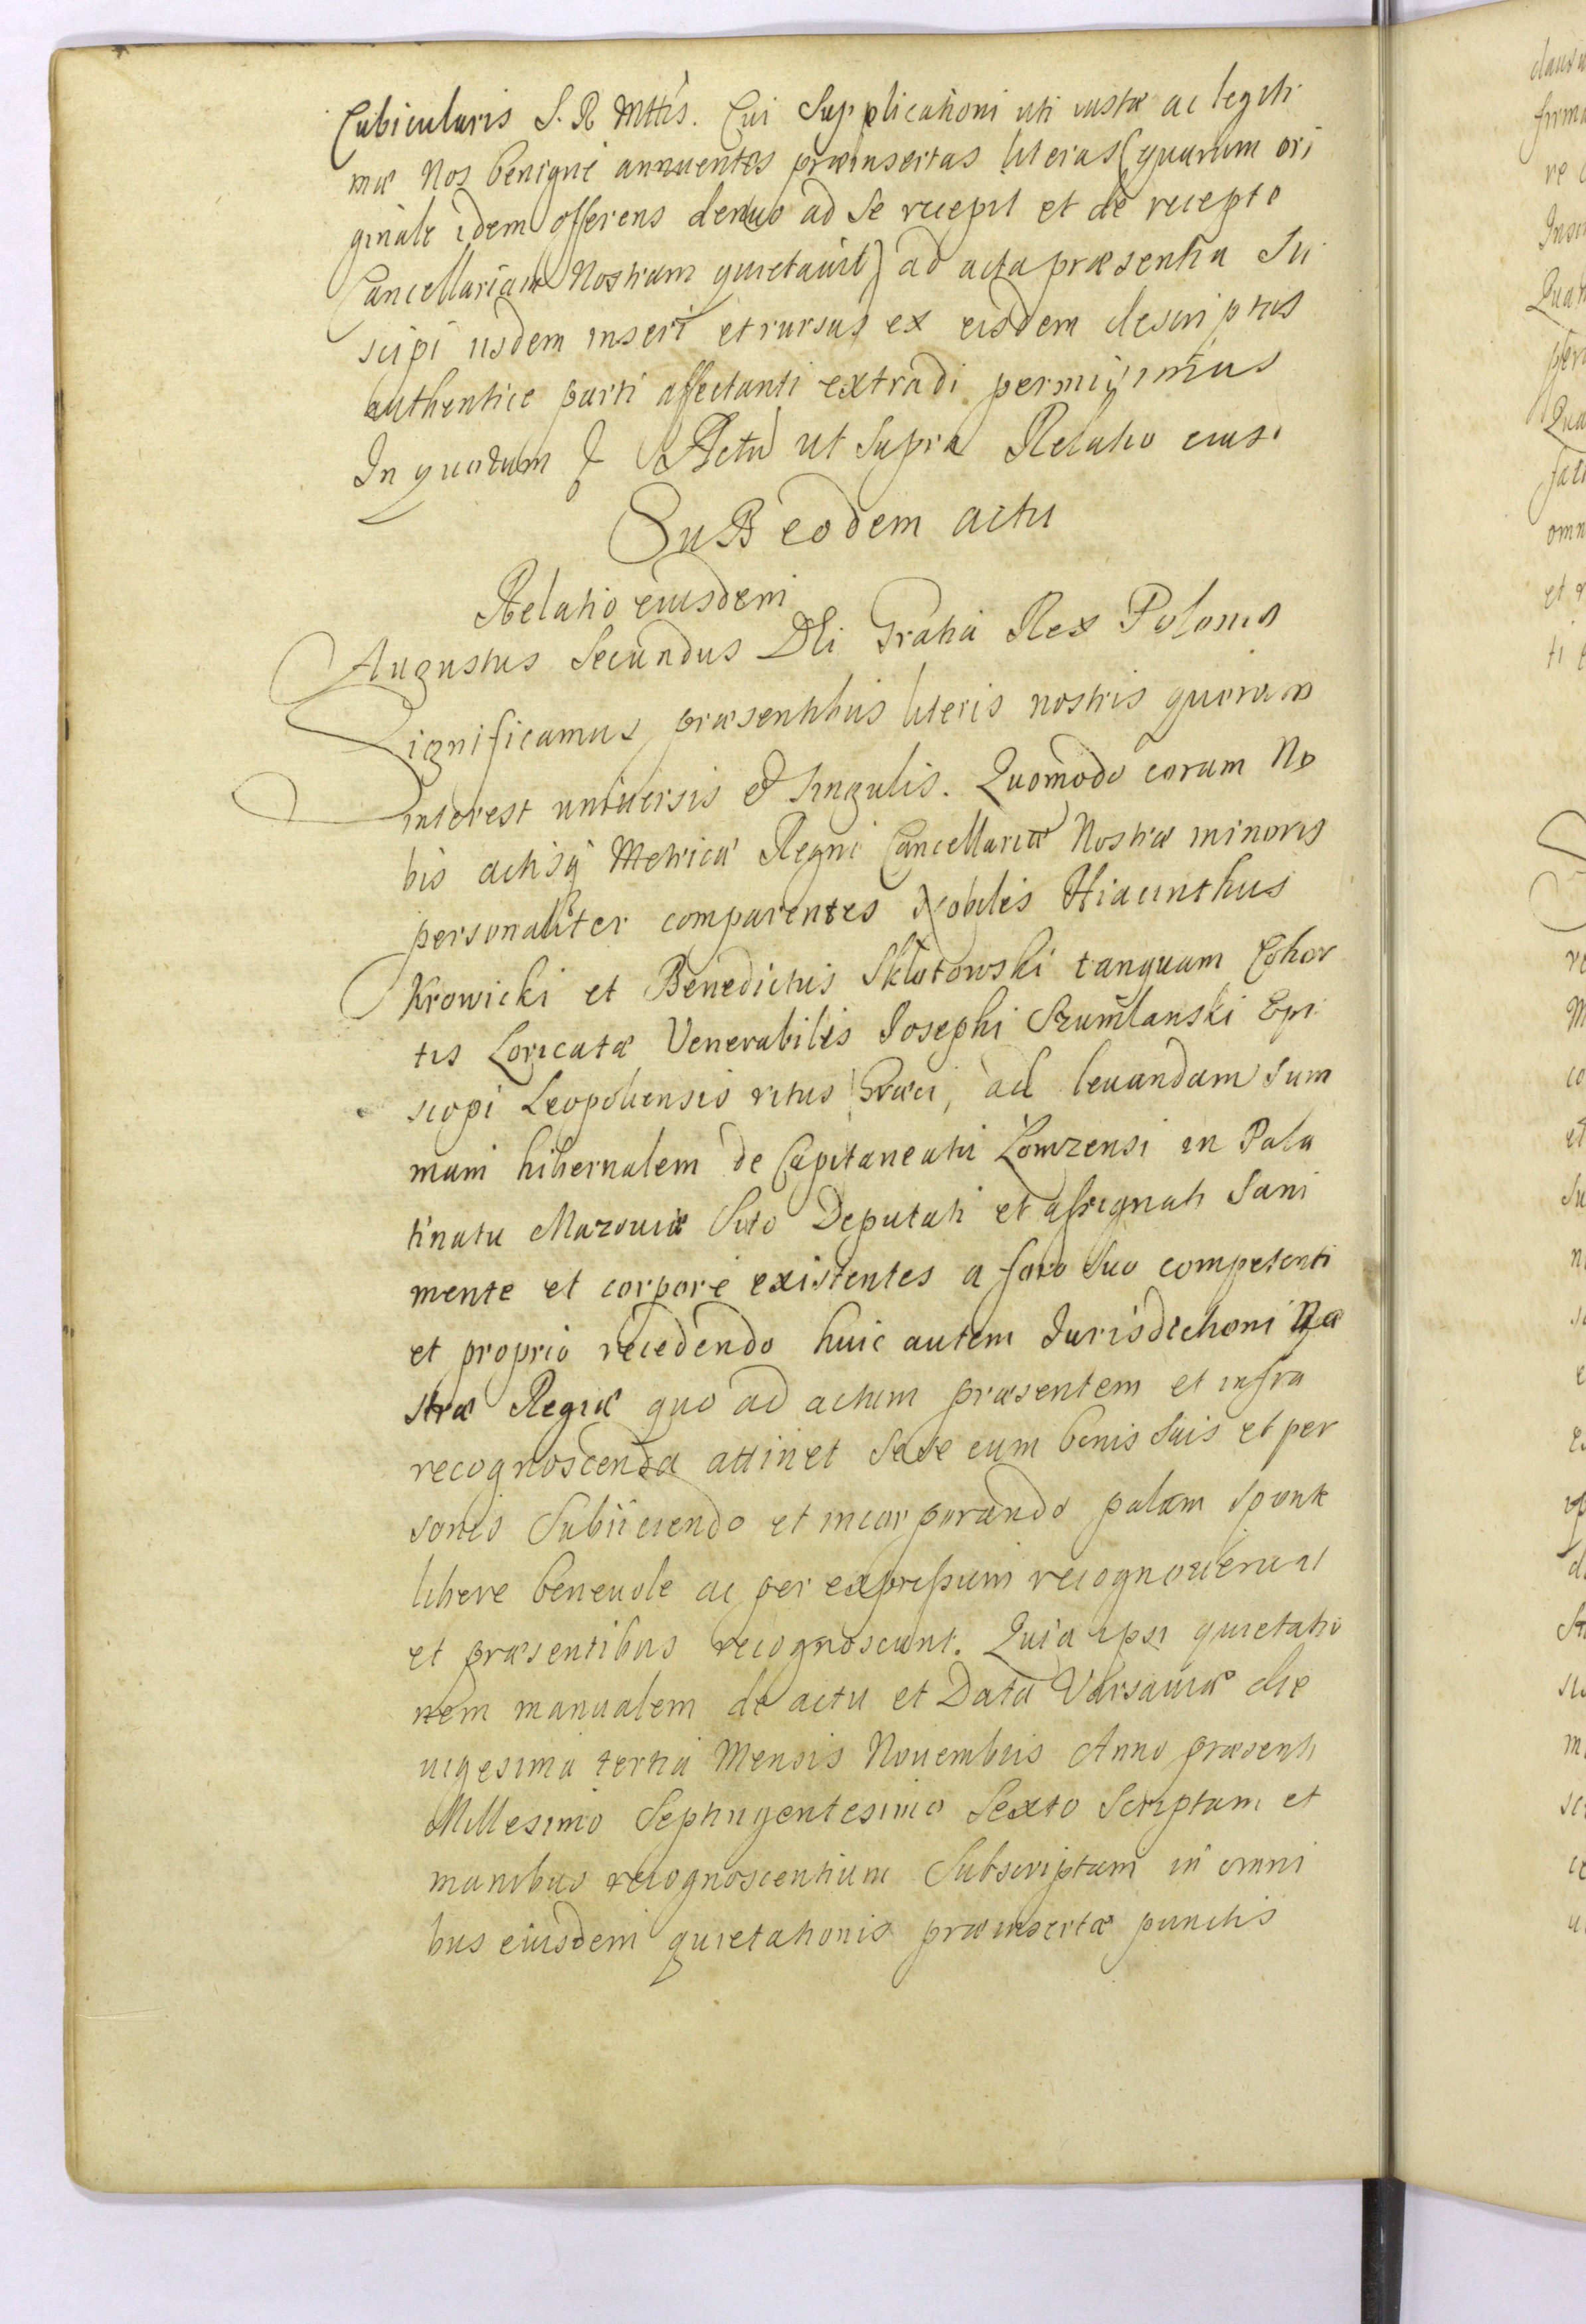 Cubicularis S. R Mttis. Cui Supplicationi uti iustæ ac legiti
mæ Nos benigne annuentes præinsertas literas (quarum ori
ginale idem offerens denuo ad se recepit et de recepto
Cancellariam Nostram quietavit) ad acta præsentia Su
scipi iisdem inseri et rursus ex eisdem descriptas
authentice parti affectanti extradi permisimus
In quorum f Actu ut Supra Relatio eius:
SuB eodem actu
Relatio eiusdem
Augustus Secundus Dei Gratia Rex Poloniæ
Significamus præsentibus literis nostris quorum
interest universis et Singulis. Quomodo coram No
bis actisq Metricæ Regni Cancellariæ Nostræ minoris
personaliter comparentes Nobiles Hiacinthus
Krowicki et Benedictus Sklutowski tanquam Cohor
tis Loricatæ Venerabilis Josephi Szumlanski Epi
scopi Leopoliensis ritus Græci, ad levandam Sum
mam hibernalem de Capitaneatu Łomzensi in Pala
tinatu Mazoviæ Sito Deputati et assignati Sani
mente et corpore existentes a foro Suo competenti
et proprio recedendo huic autem Jurisdictioni No
stræ Regiæ quo ad actum præsentem et infra
recognoscenda attinet Sese cum bonis Suis et per
sonis Subiiciendo et incorporando palam sponte
libere benevole ac per expressum recognoverunt
et præsentibus recognoscunt. Quia ipsi quietatio
nem manualem de actu et Data Varsaviæ die
vigesima tertia Mensis Novembris Anno præsenti
Millesimo Septingentesimo Sexto Scriptam et
manibus recognoscentium Subscriptam in omni
bus eiusdem quietationis præinsertæ punctis